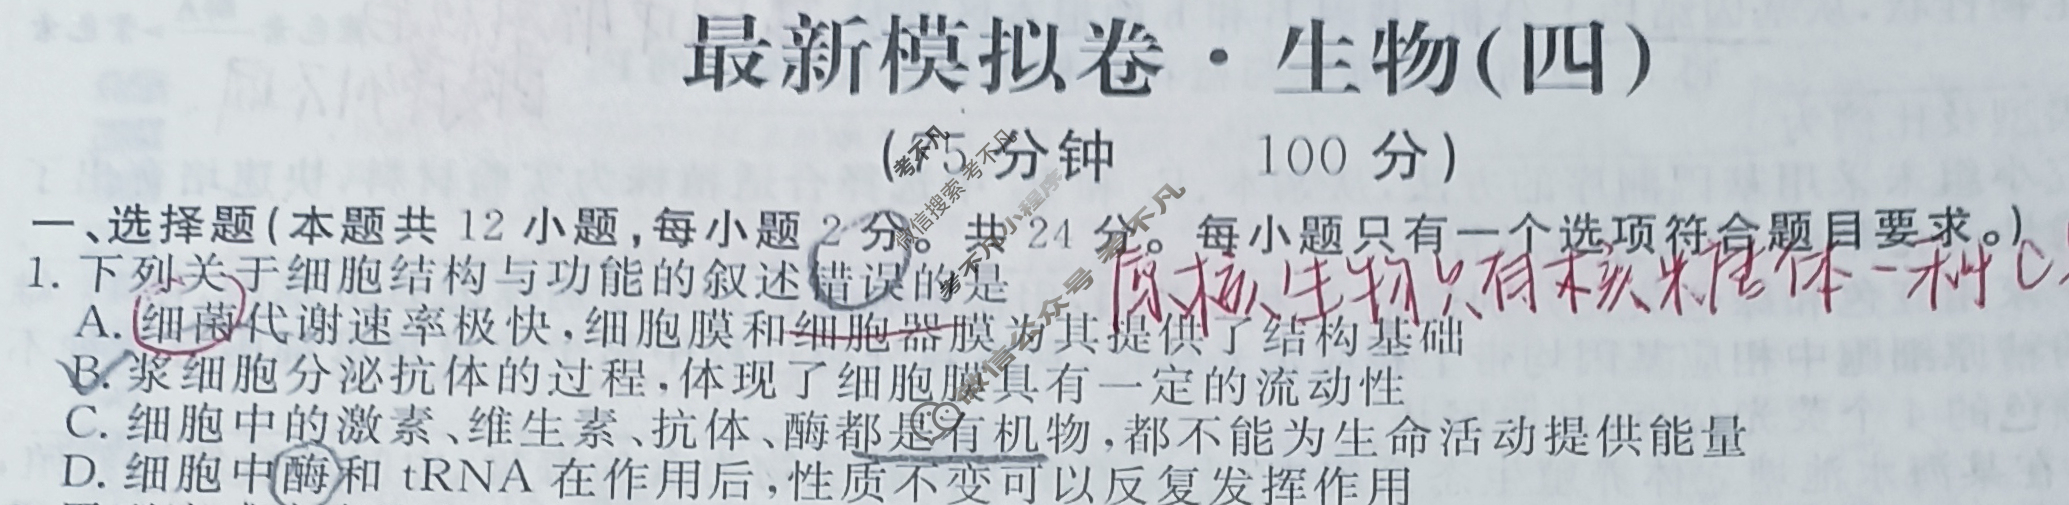 最新模拟卷·生物(四)
(75分钟 100分)
一、选择题(本题共 12 小题,每小题 2 分。共 24 分。每小题只有一个选项符合题目要求。)
1. 下列关于细胞结构与功能的叙述错误的是
原核生物只有核糖体一种
A. 细菌代谢速率极快,细胞膜和细胞器膜为其提供了结构基础
B. 浆细胞分泌抗体的过程,体现了细胞膜具有一定的流动性
C. 细胞中的激素、维生素、抗体、酶都是有机物,都不能为生命活动提供能量
D. 细胞中酶和 tRNA 在作用后,性质不变可以反复发挥作用
考不凡
微信搜索考不凡
考不凡小程序
微信公众号 考不凡